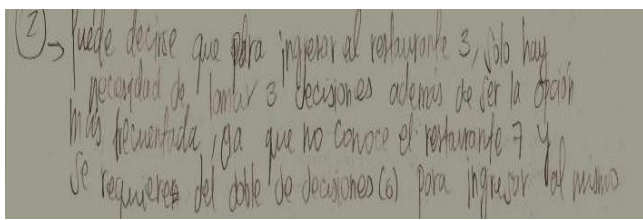 ② → Puede decirse que para ingresar al restaurante 3, solo hay
necesidad de tomar 3 decisiones además de ser la opción
más frecuentada, ya que no conoce el restaurante 7 y
se requieren del doble de decisiones (6) para ingresar al mismo